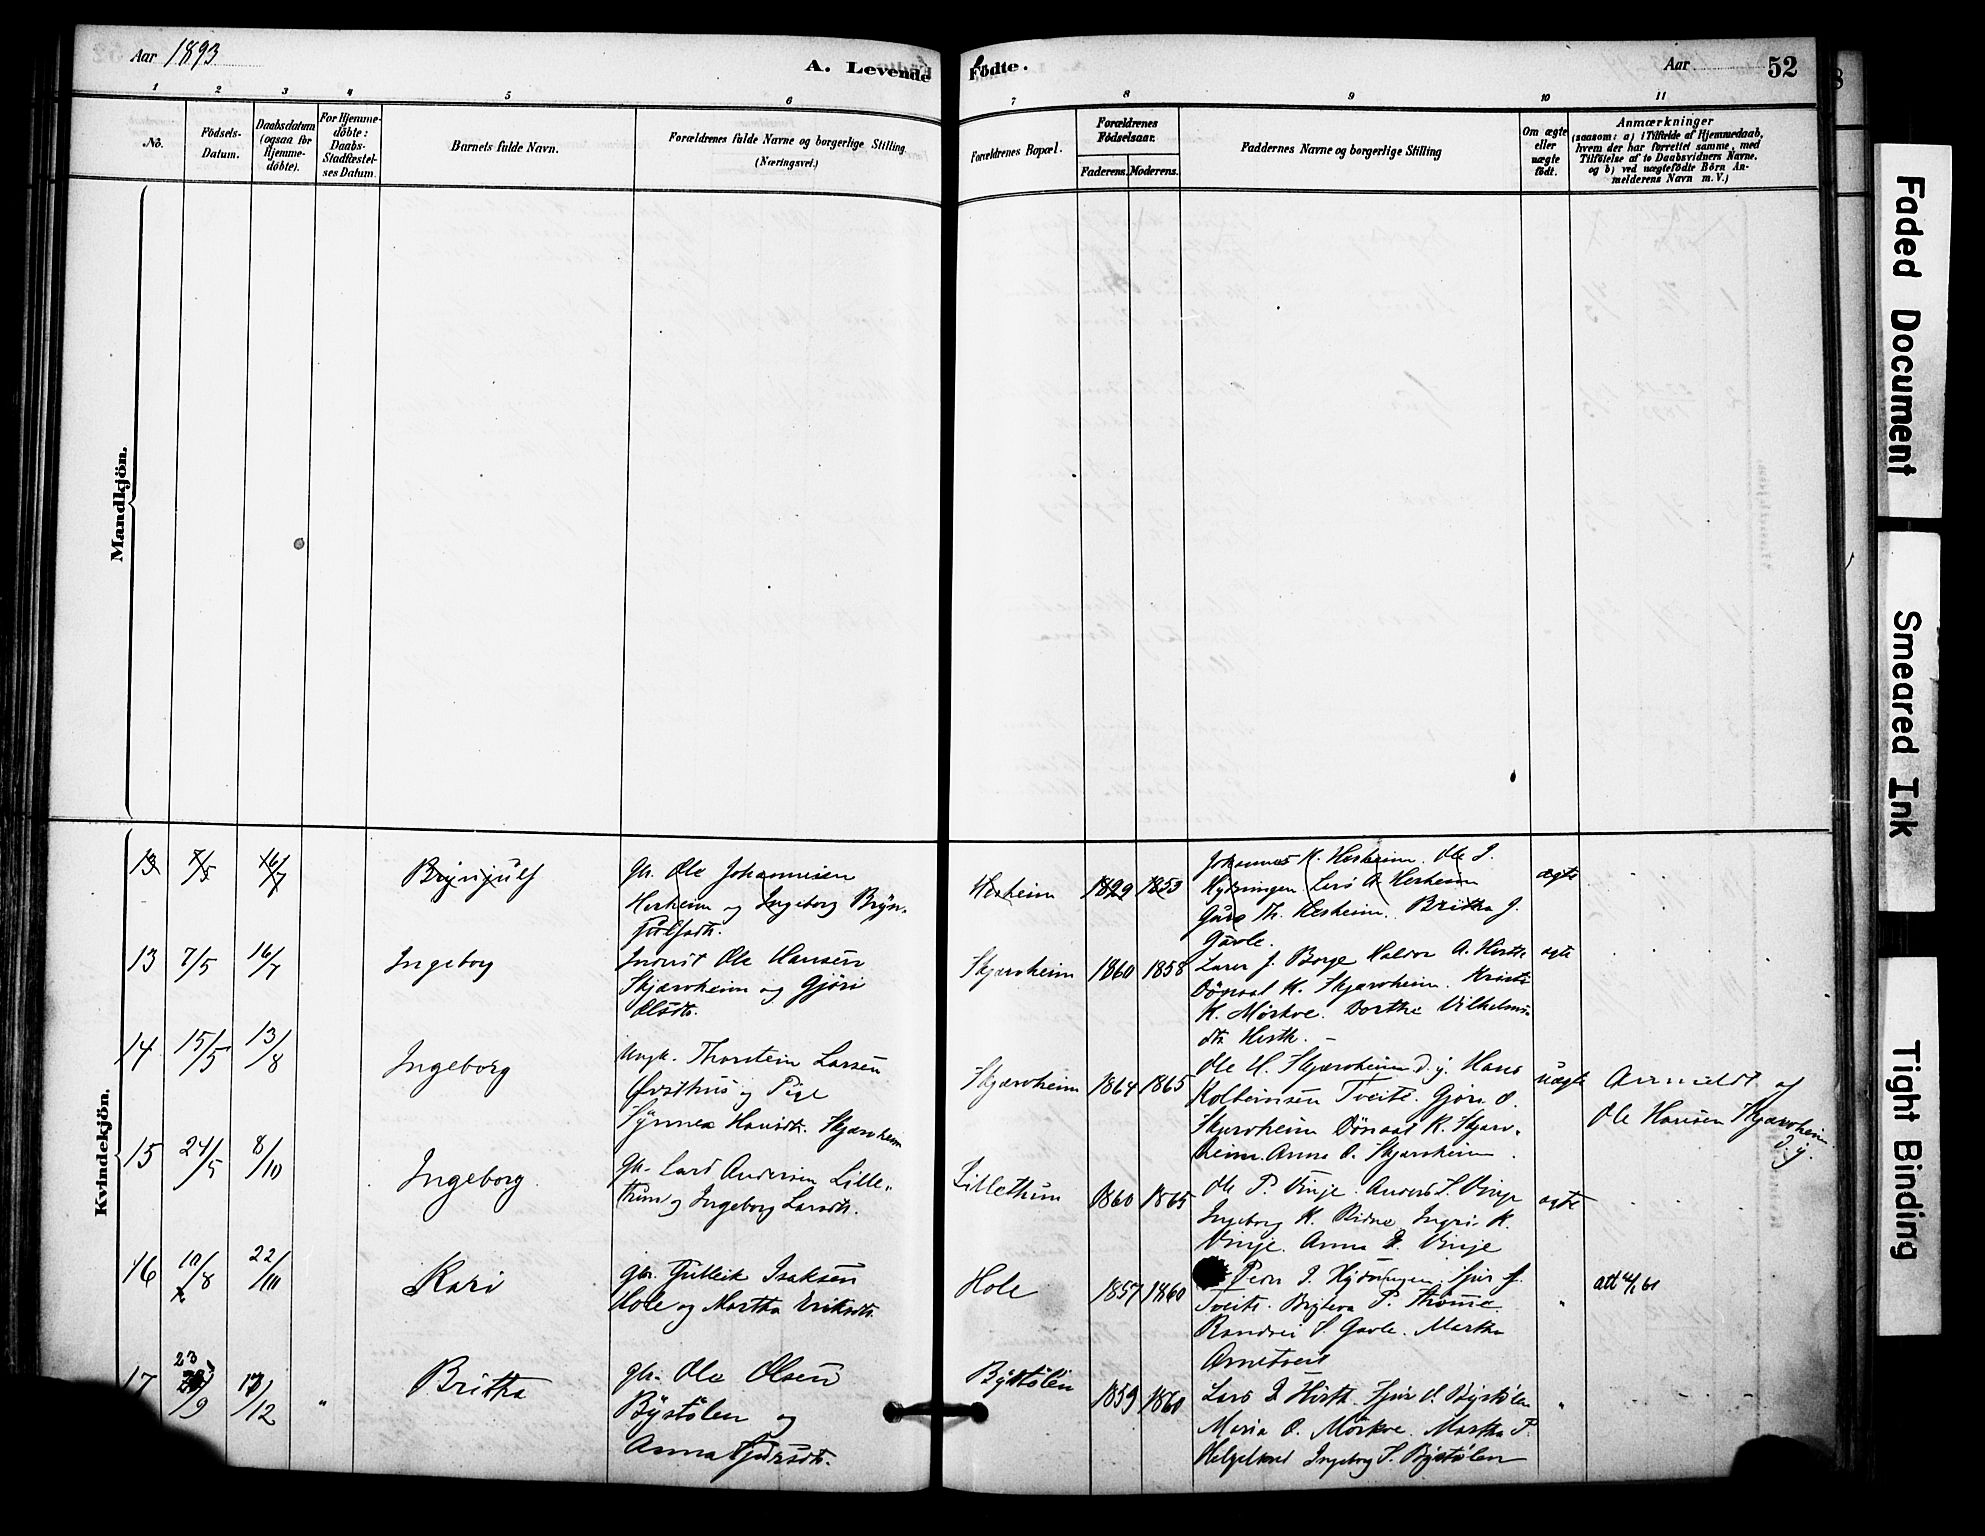 Aar 1893
A. Levende Födte.
Aar
52
1 2 3 4 5 6 7 8 9 10 11
No.
Födsels-
Datum.
Daabsdatum
(ogsaa for
Hjemme-
döbte).
For Hjemme-
döbte:
Daabs-
Stadfæstel-
ses Datum.
Barnets fulde Navn.
Forældrenes fulde Navne og borgerlige Stilling
(Næringsvei.)
Forældrenes Bopæl.
Forældrenes
Födselsaar.
Faderens. Moderens.
Faddernes Navne og borgerlige Stilling
Om ægte
eller
uægte
födt.
Anmærkninger
(saasom: a) i Tilfælde af Hjemmedaab,
hvem der har forrettet samme, med
Tilföielse af to Daabsvidners Navne.
og b) ved uægtefödte Börn An-
melderens Navn m. V.)
Mandkjön.
Kvindekjön.
13 7/5 16/7 Brynjulf
Gbr. Ole Johannesen
Herheim og Ingeborg Bryn-
julfsdtr.
Herheim 1829 1853
Johannes K. Herheim. Ole I.
Herheim
Th. Herheim. Britha J.
Gavle.
ægte
13 7/5 16/7 Ingeborg
Inderst Ole Hansen
Skjærvheim og Gjöri
Olsdtr.
Skjærvheim 1860 1858
Lars J. Borge Haldor A. Herth
K. Skjærvheim. Kristi
K. Mörkve. Dorthe Vilhelms-
dtr Herth. -
ægte
14 15/5 13/8 Ingeborg
Ungk. Thorstein Larsen
Övsthus og Pige
Synneva Hansdtr. Skjærvheim
Skjærvheim 1864 1865
Ole H. Skjærvheim d.y. Hans
Kolbeinsen Tveite. Gjöri O.
Skjærvheim K. Skjærv-
heim. Anna O. Skjærvheim.
uægte
Anmeldt af
Ole Hansen Skjærvheim
d.y.
15 24/5 8/10 Ingeborg.
Gbr. Lars Andersen Lille-
thun og Ingeborg Larsdtr.
Lillethun 1860 1865
Ole P. Vinje. Anders L. Vinje
Ingeborg K. Ringri K.
Vinje. Anna Vinje
ægte
16 10/8 22/10 Kari
Gbr. Gulleik Isaksen
Hole og Martha Eriksdtr.
Hole 1857 1860
Peder I. Sjur J.
Tveite. Bryteva P.
Randvei S. Gavle. Martha
Arnetveit
"
att 4/1 61
17 23/9 17/12 " Britha
Gbr. Ole Olsen
Bystölen og
Anna Sjursdtr.
Bystölen 1859 1860
Lars Herth. Sjur O. Bystölen
Maria O. Mörkve. Martha P.
Helgeland Ingeborg S. Bystölen
"
Faded Document
Smeared Ink
Tight Binding